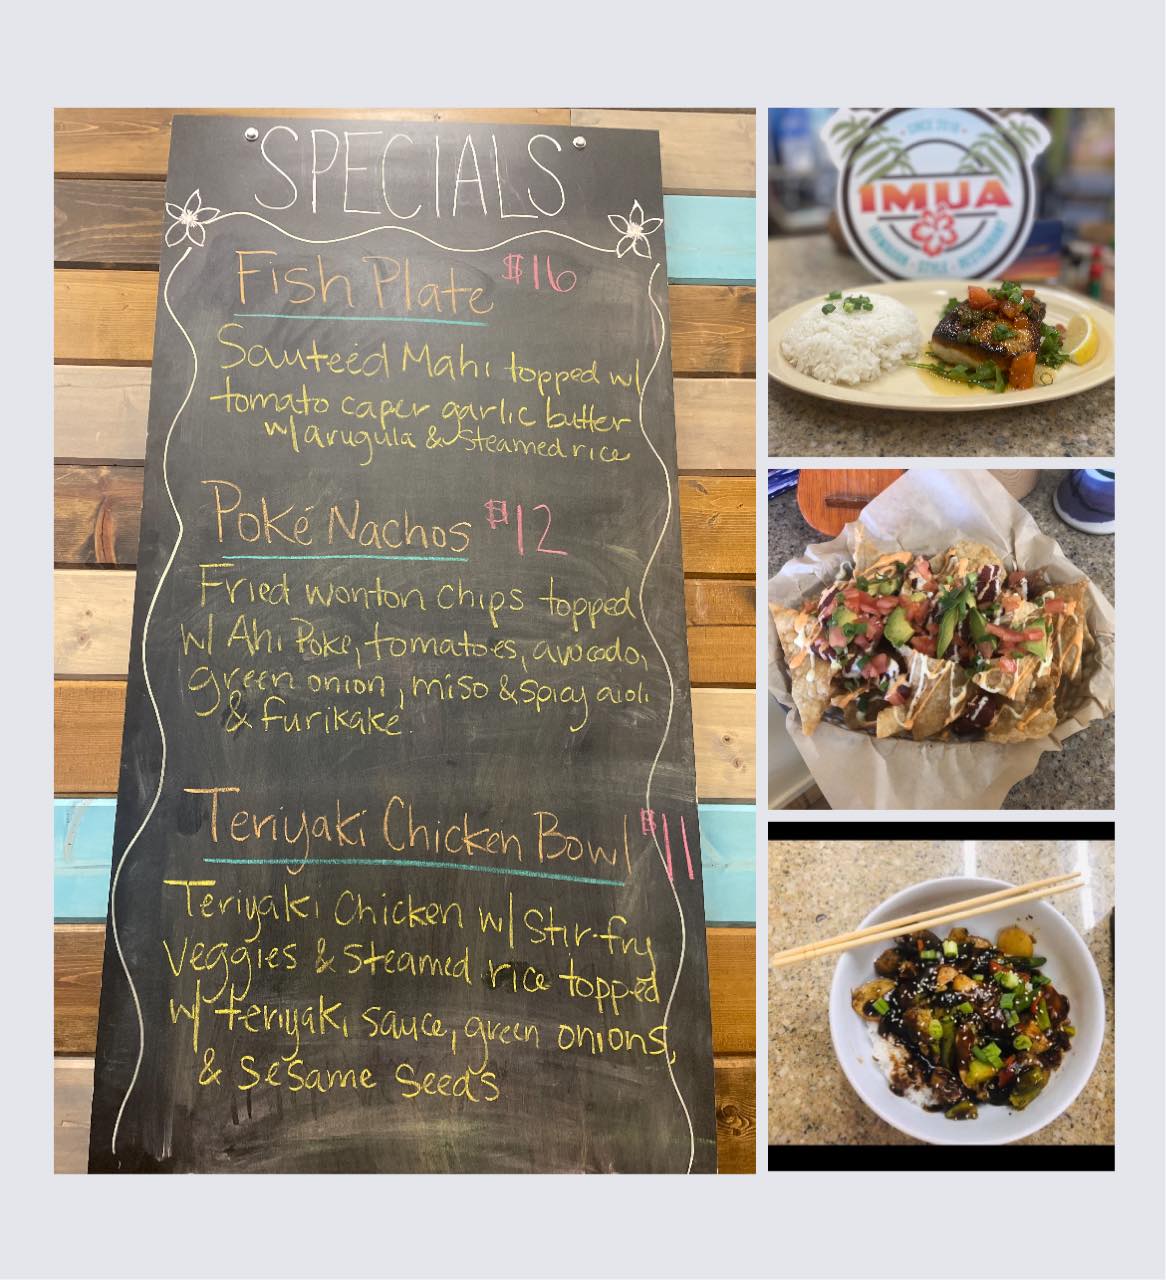 SPECIALS
Fish Plate $16
Sauteéd Mahi topped w/
tomato caper garlic butter
w/arugula & steamed rice
Poké Nachos $12
Fried wonton chips topped
w/ Ahi Poke, tomatoes, avocado,
green onion, miso & spicy aioli
& furikake.
Teriyaki Chicken Bowl $11
Teriyaki Chicken w/ Stir-fry
Veggies & Steamed rice topped
w/ teriyaki sauce, green onions,
& Sesame Seeds
• SINCE 2018 •
IMUA
HAWAIIAN • STYLE • RESTAURANT